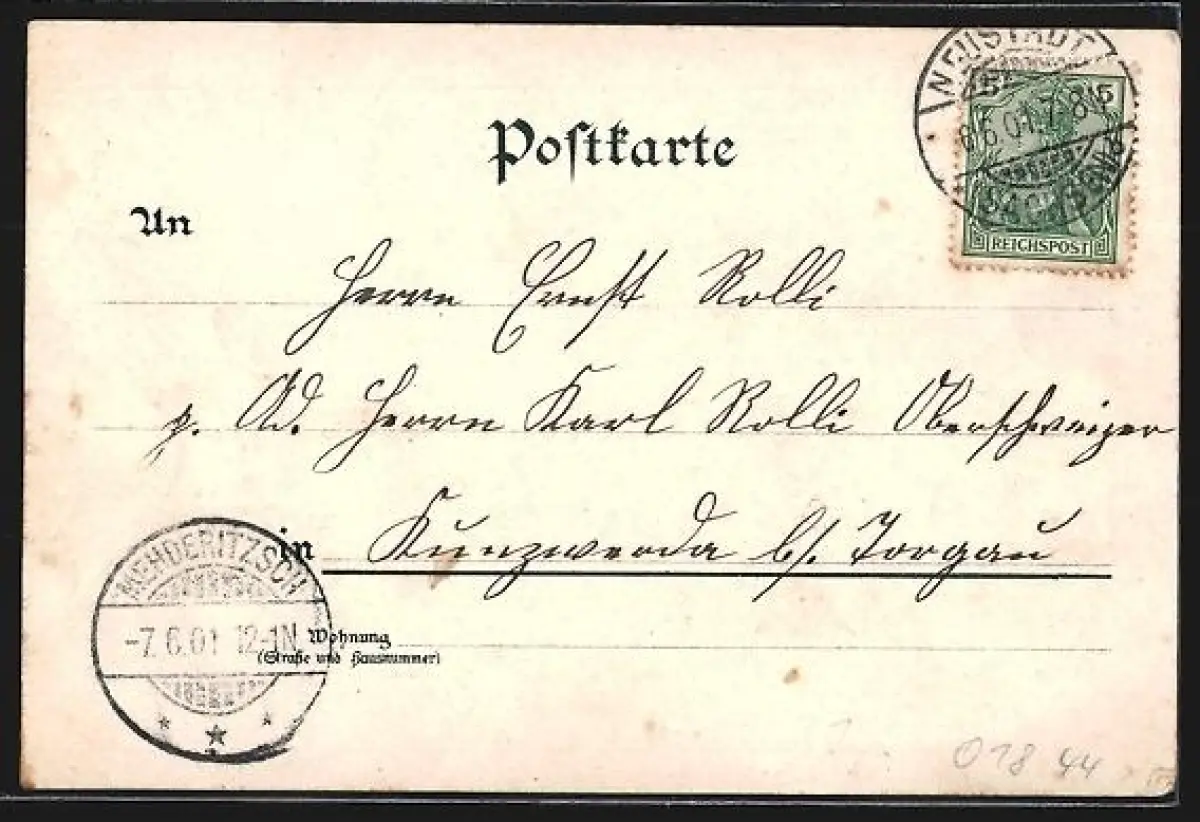 NEUSTADT
6 6 01. 7-8N
SACHSEN
5 5
REICHSPOST
Postkarte
An
Herrn Ernst Rolli
p. Ad. Herrn Karl Rolli Oberschweizer
in Kunzwerda b/. Torgau
MEHDERITZSCH
-7.6.01 12-1N
Wohnung
(Straße und Hausnummer)
018 44